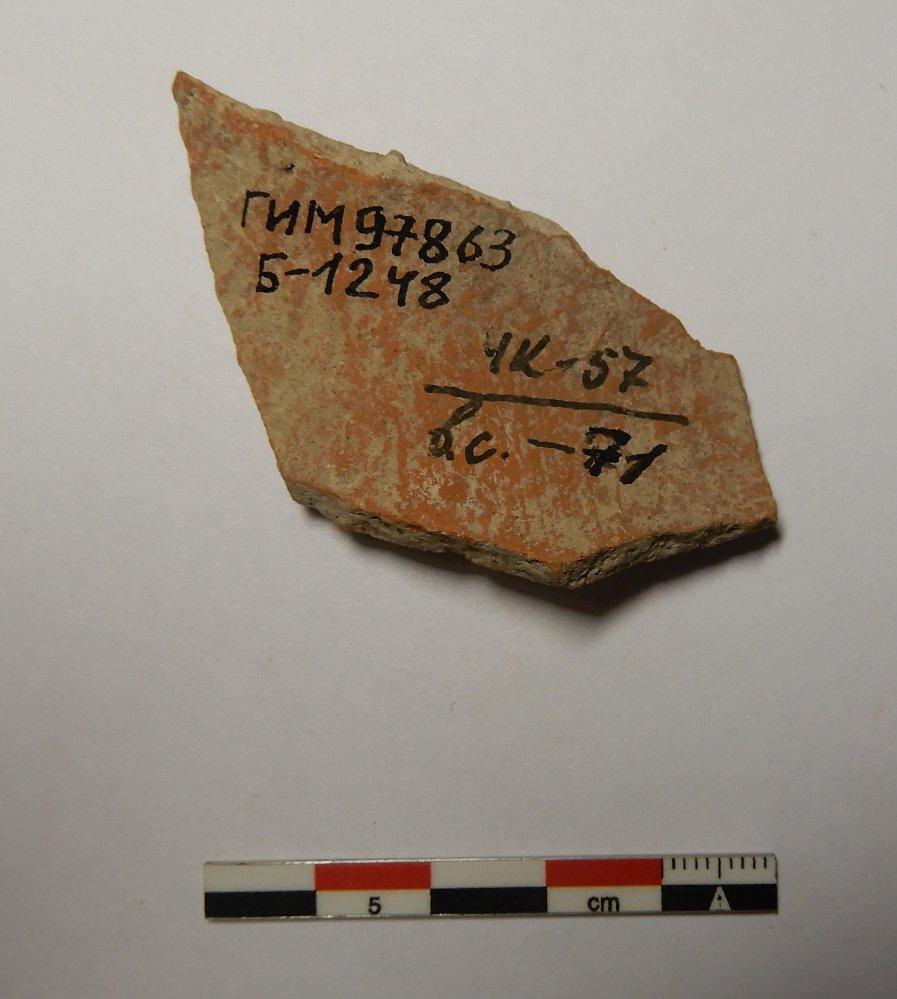 ГИМ 97863
Б-1248
ЧК-57
б.с. - 71
5 cm